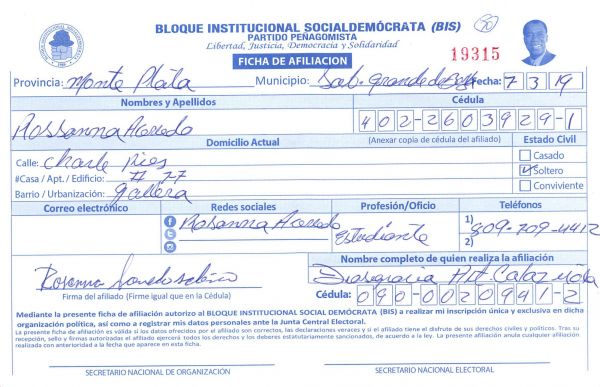 BLOQUE INSTITUCIONAL SOCIALDEMÓCRATA (BIS)
PARTIDO PEÑAGOMISTA
Libertad, Justicia, Democracia y Solidaridad
FICHA DE AFILIACION
19315
Provincia: Monte Plata Municipio: Sab. Grande de Boyá Fecha: 7 3 19
Nombres y Apellidos Cédula
Rossanna Acevedo 402-2603929-1
Domicilio Actual (Anexar copia de cédula del afiliado) Estado Civil
Calle: Charle Pies Casado
#Casa / Apt. / Edificio: # 77 Soltero
Barrio / Urbanización: Gallera Conviviente
Correo electrónico Redes sociales Profesión/Oficio Teléfonos
Rosanna Acevedo Estudiante 1) 809-709-4412
2)
Nombre completo de quien realiza la afiliación
Firma del afiliado (Firme igual que en la Cédula) Cédula: 090-0020941-2
Mediante la presente ficha de afiliación autorizo al BLOQUE INSTITUCIONAL SOCIAL DEMÓCRATA (BIS) a realizar mi inscripción única y exclusiva en dicha
organización política, así como a registrar mis datos personales ante la Junta Central Electoral.
La presente ficha de afiliación es válida si los datos ofrecidos por el afiliado son correctos, las declaraciones veraces y si el afiliado tiene el disfrute de sus derechos civiles y políticos. Tras su
recepción, sello y firmas autorizadas el afiliado ejercerá todos los derechos y los deberes estatutariamente sancionados, de acuerdo a la ley. La presente afiliación anula cualquier afiliación
realizada con anterioridad a la fecha que aparece en esta ficha.
SECRETARIO NACIONAL DE ORGANIZACIÓN SECRETARIO NACIONAL ELECTORAL